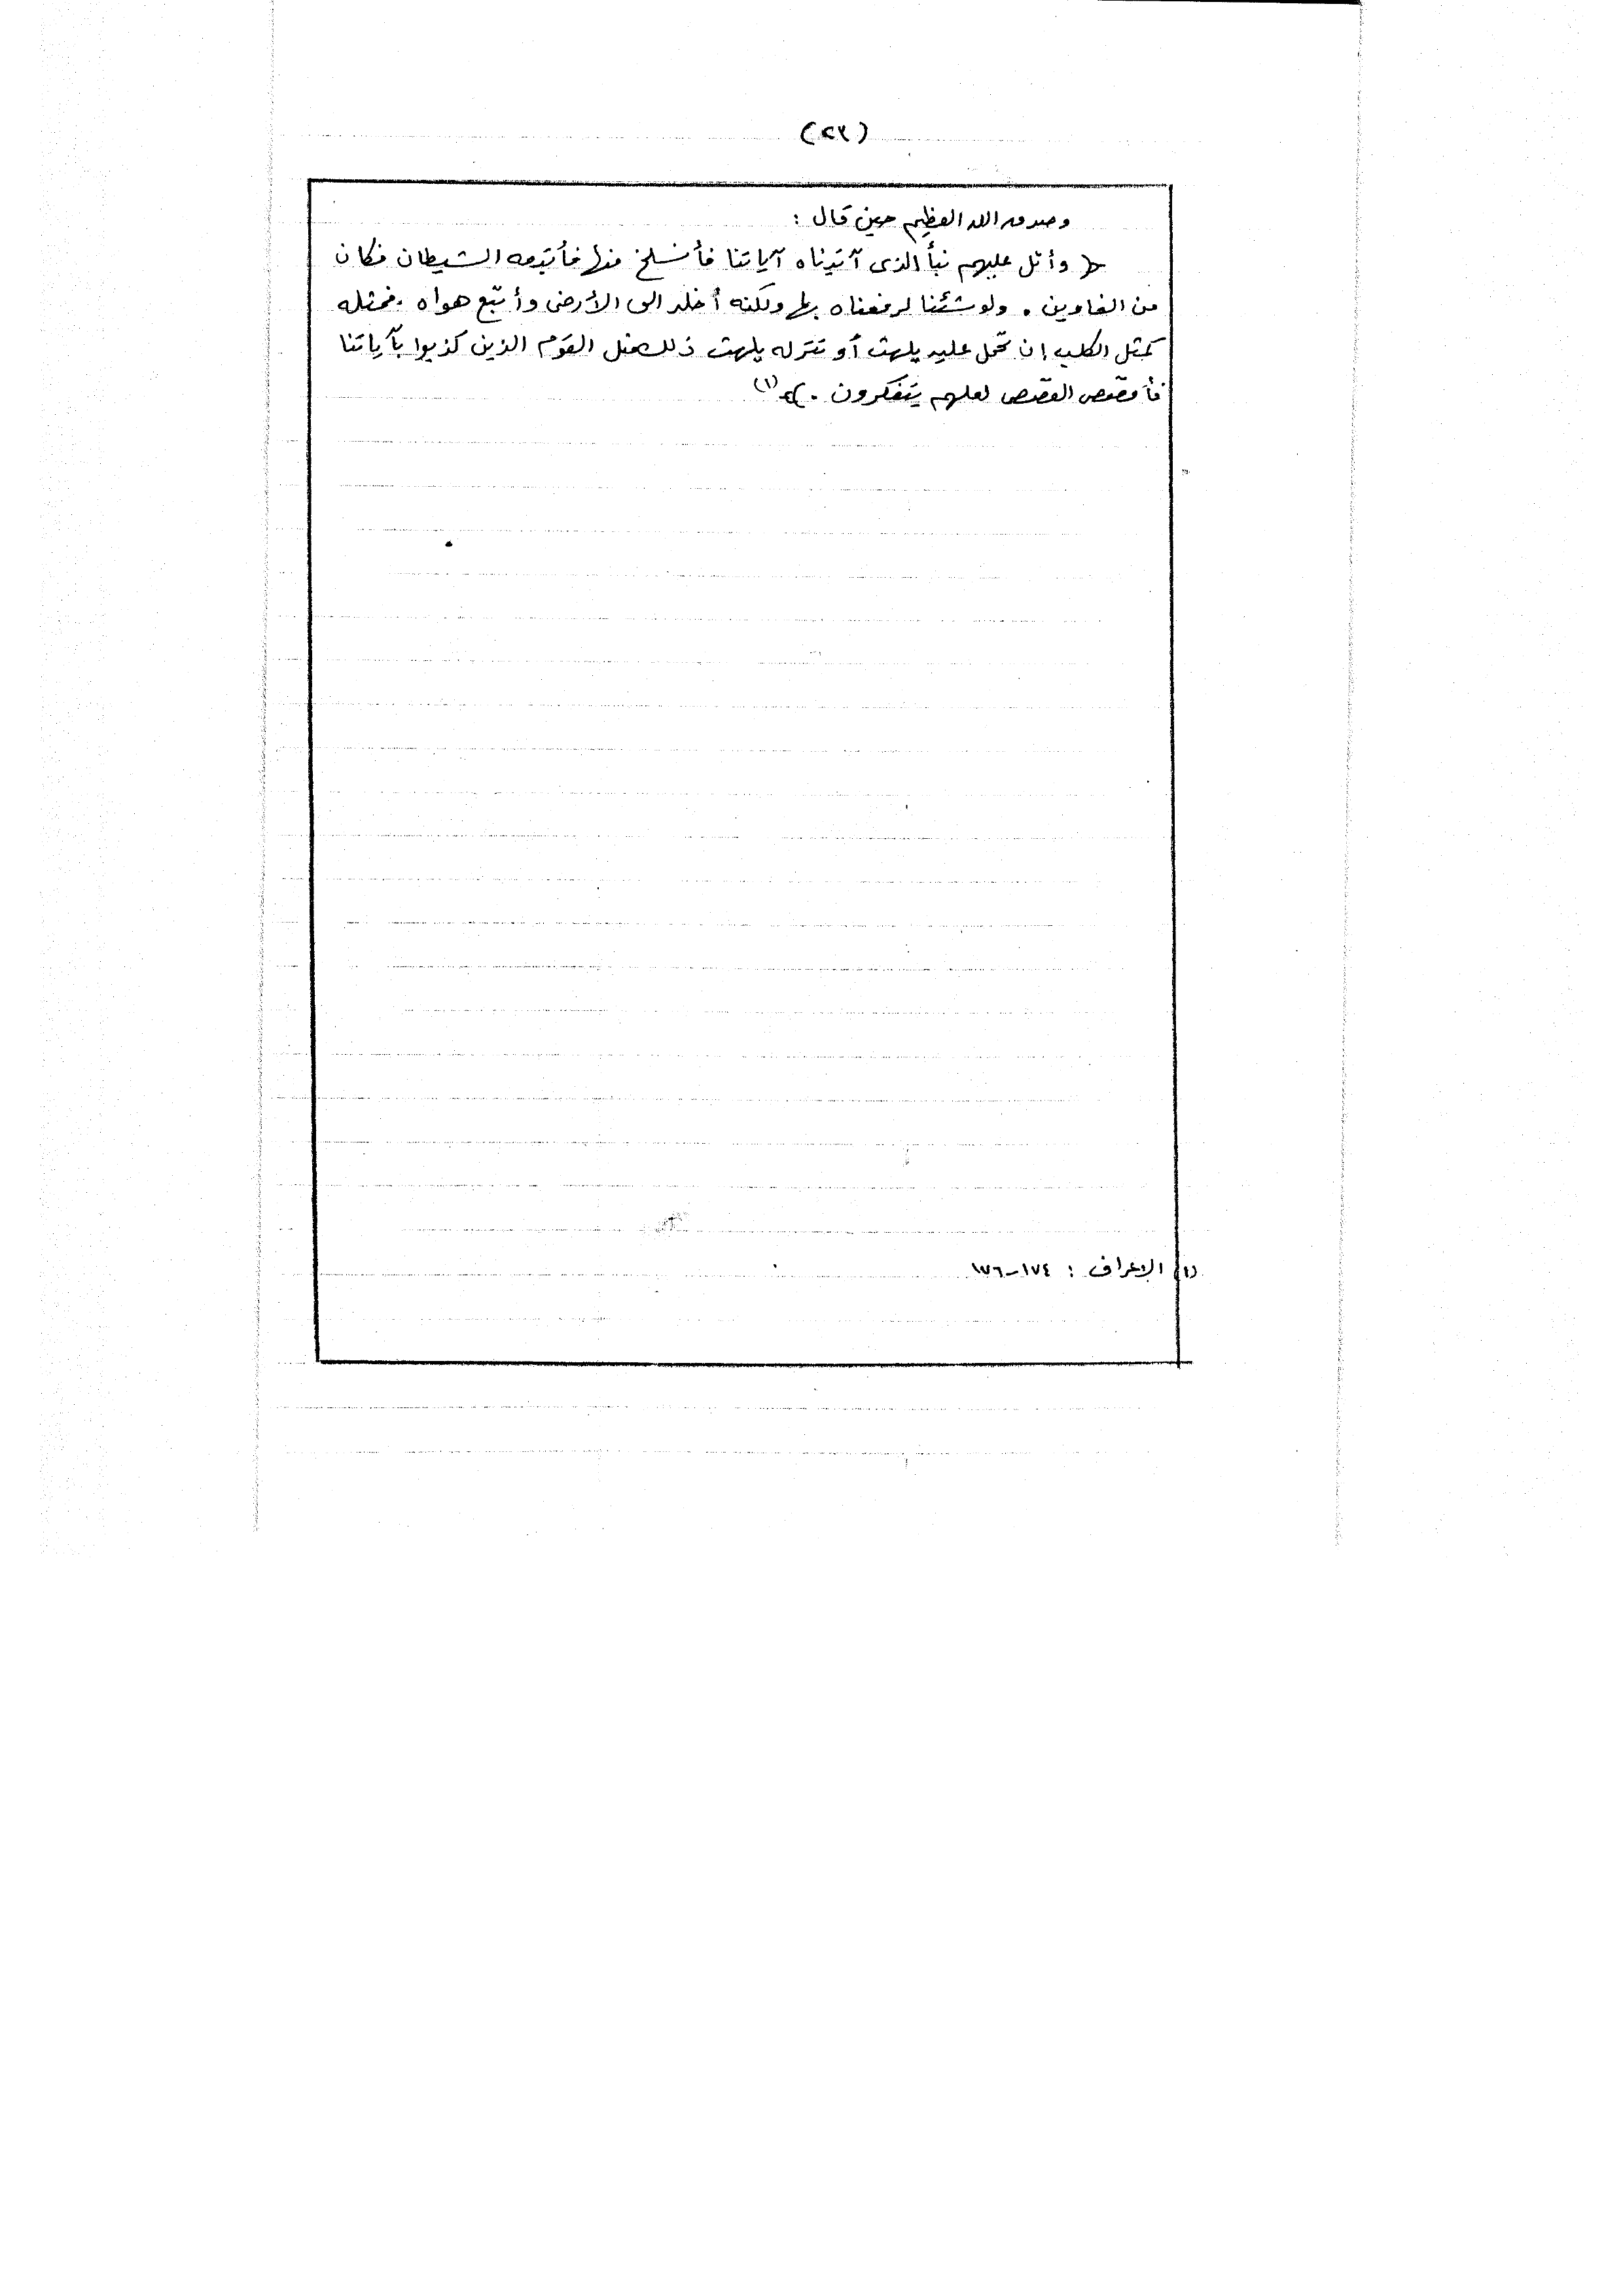 (٢٧)
وصدق الله العظيم حين قال :
﴿ وأتل عليهم نبأ الذى آتيناه آياتنا فأنسلخ منها فأتبعه الشيطان فكان
من الغاوين . ولو شئنا لرفعناه بها ولكنه أخلد الى الأرض وأتبع هواه . فمثله
كمثل الكلب إن تحمل عليه يلهث أو تتركه يلهث ذلك مثل القوم الذين كذبوا بآياتنا
فأقصص القصص لعلهم يتفكرون . ﴾ (١)
(١) الاعراف : ١٧٤-١٧٦